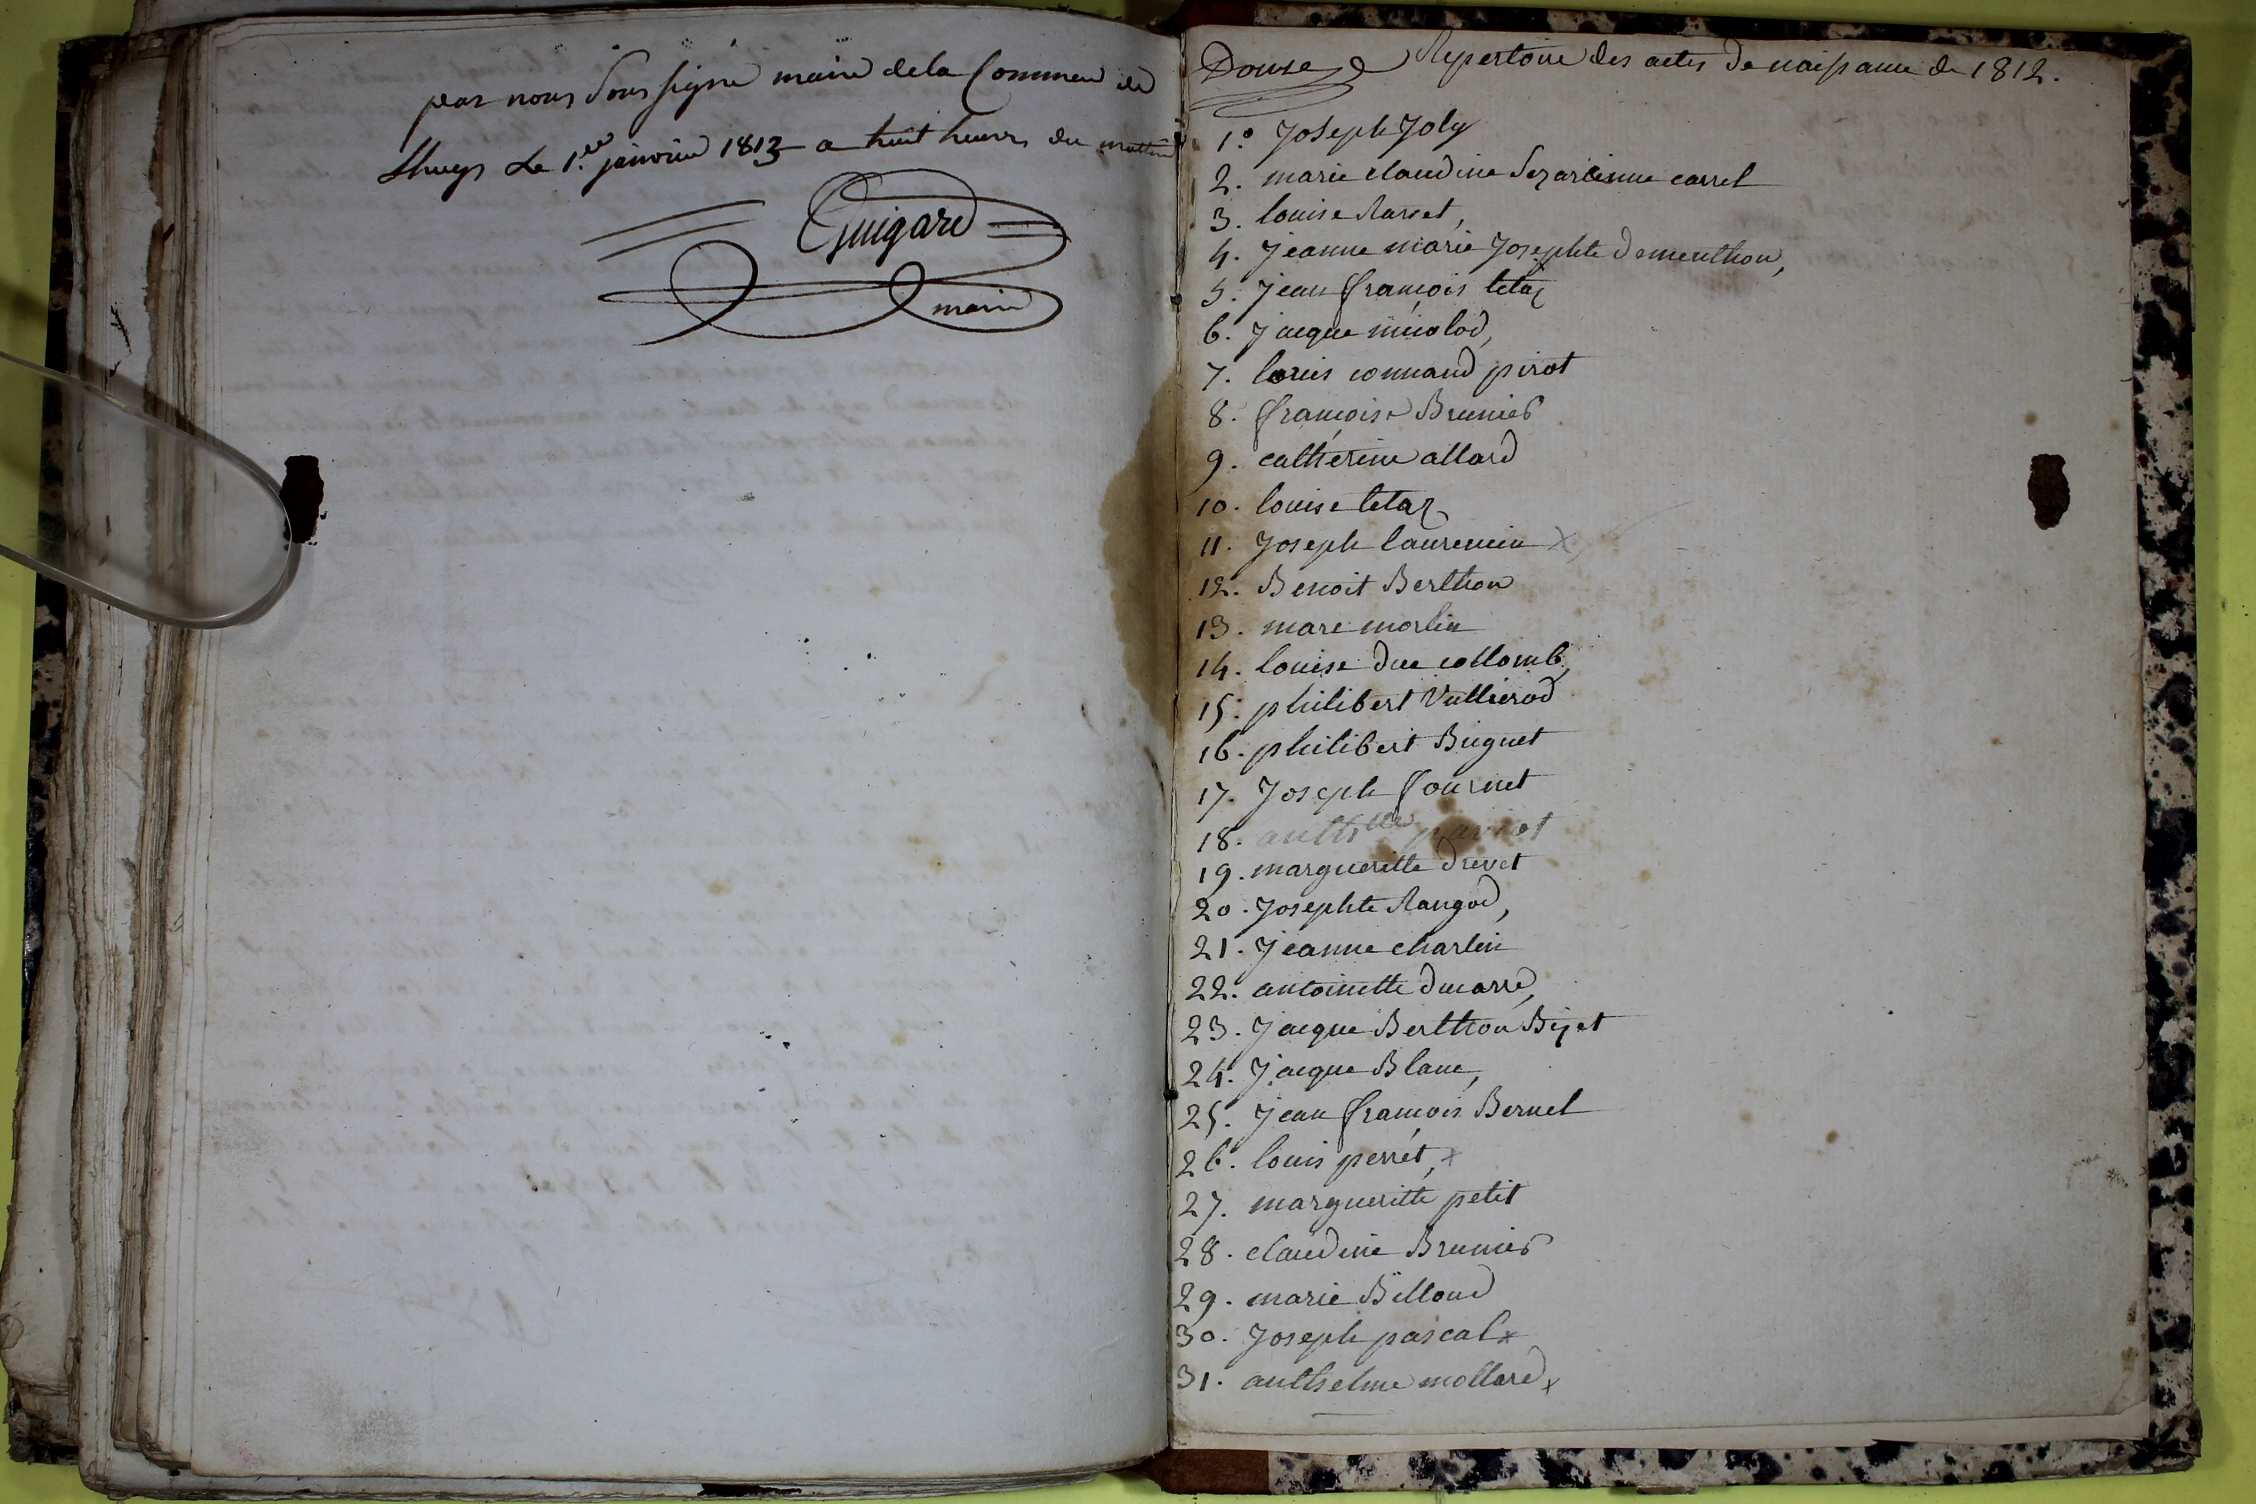 par nous Soussigné maire de la Commune de
Lhuys Le 1.er janvier 1813 a huit heures du mattin
Guigard
maire
Douse Repertoire des actes de naissance de 1812.
1.° Joseph Joly
2. marie claudine carrel
3. louise Ravet,
4. Jeanne marie Josephte dementhon,
5. Jean françois letaz
6. Jacque niciolod,
7. louis connand pirot
8. françoise Brunier
9. catherine allard
10. louise letaz
11. Joseph laurencin x
12. Benoit Berthon
13. marc morlin
14. louise duc collomb,
15. philibert Vullierod
16. philibert Buguet
17. Joseph fournet
18.
19. margueritte drevet
20. Josephte Rangod,
21. Jeanne charlin
22. antoinette ducarre,
23. Jacque Berthon Bijet
24. Jacque Blanc,
25. Jean françois Bernel
26. louis perret, x
27. margueritte petit
28. claudine Brunier
29. marie Billoud
30. Joseph pascal x
31. anthelme mollard x